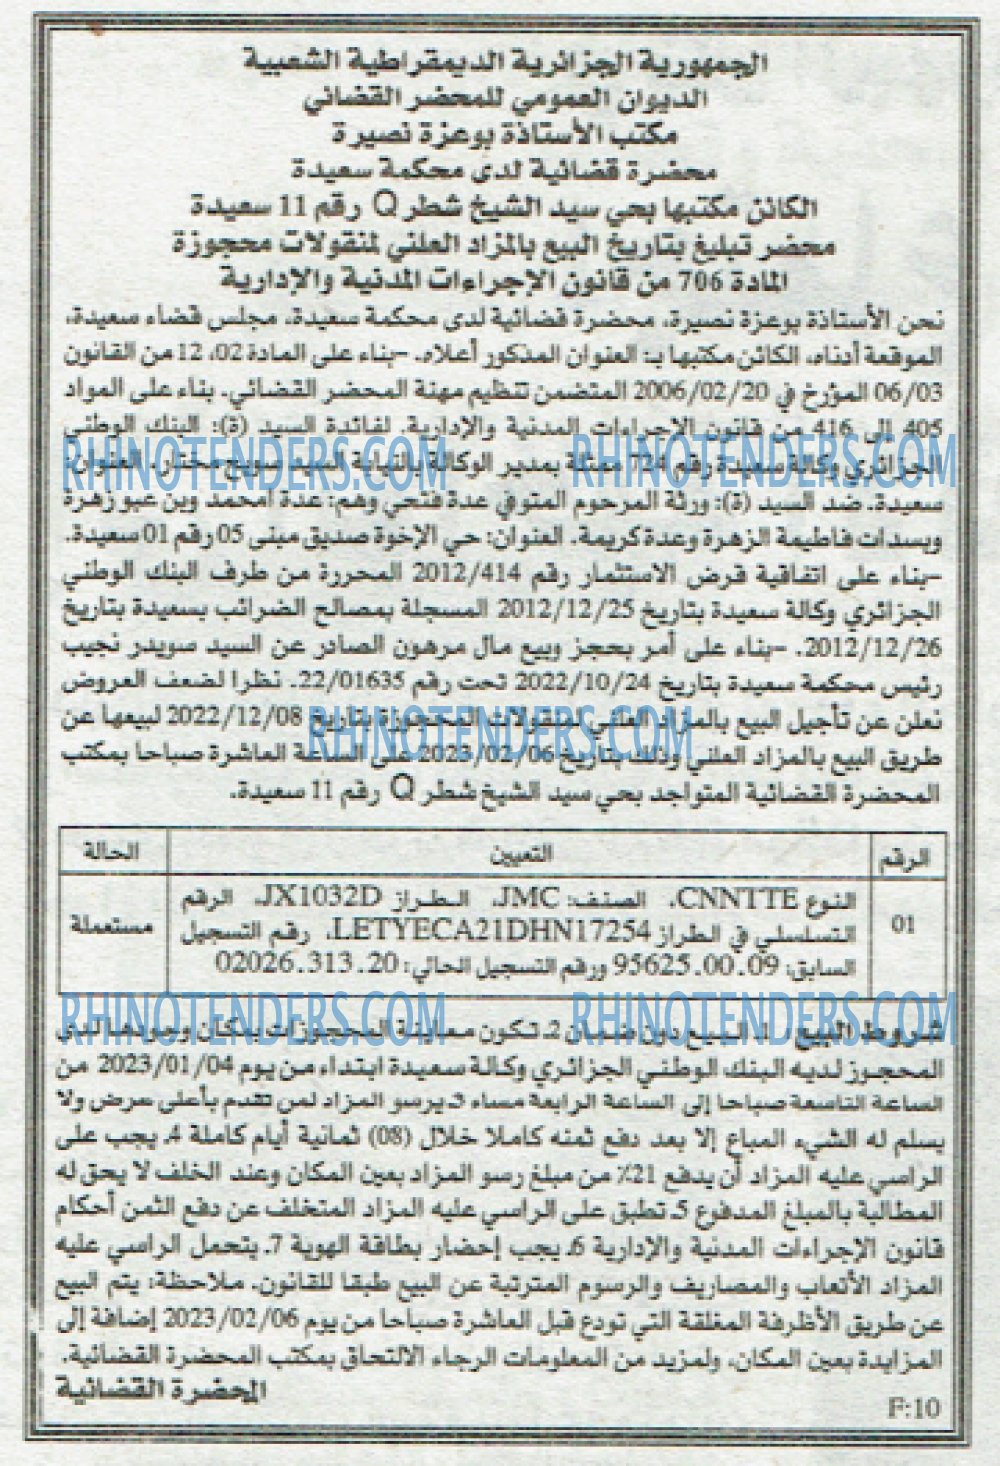 الجمهورية الجزائرية الديمقراطية الشعبية
الديوان العمومي للمحضر القضائي
مكتب الأستاذة بوعزة نصيرة
محضرة قضائية لدى محكمة سعيدة
الكائن مكتبها بحي سيد الشيخ شطر Q رقم 11 سعيدة
محضر تبليغ بتاريخ البيع بالمزاد العلني لمنقولات محجوزة
المادة 706 من قانون الإجراءات المدنية والإدارية
نحن الأستاذة بوعزة نصيرة، محضرة قضائية لدى محكمة سعيدة، مجلس قضاء سعيدة،
الموقعة أدناه، الكائن مكتبها بـ: العنوان المذكور أعلاه. -بناء على المادة 02، 12 من القانون
06/03 المؤرخ في 2006/02/20 المتضمن تنظيم مهنة المحضر القضائي. بناء على المواد
405 إلى 416 من قانون الإجراءات المدنية والإدارية. لفائدة السيد (ة): البنك الوطني
الجزائري وكالة سعيدة رقم 724 ممثلة بمدير الوكالة بالنيابة السيد سويح مختار. العنوان:
سعيدة. ضد السيد (ة): ورثة المرحوم المتوفي عدة فتحي وهم: عدة امحمد وبن عبو زهرة
وبسدات فاطيمة الزهرة وعدة كريمة. العنوان: حي الإخوة صديق مبنى 05 رقم 01 سعيدة.
-بناء على اتفاقية قرض الاستثمار رقم 2012/414 المحررة من طرف البنك الوطني
الجزائري وكالة سعيدة بتاريخ 2012/12/25 المسجلة بمصالح الضرائب بسعيدة بتاريخ
2012/12/26. -بناء على أمر بحجز وبيع مال مرهون الصادر عن السيد سويدر نجيب
رئيس محكمة سعيدة بتاريخ 2022/10/24 تحت رقم 22/01635. نظرا لضعف العروض
نعلن عن تأجيل البيع بالمزاد العلني لمنقولات المحجوزة بتاريخ 2022/12/08 لبيعها عن
طريق البيع بالمزاد العلني وذلك بتاريخ 2023/02/06 على الساعة العاشرة صباحا بمكتب
المحضرة القضائية المتواجد بحي سيد الشيخ شطر Q رقم 11 سعيدة.
الرقم التعيين الحالة
01 النوع CNNTTE، الصنف: JMC، الطراز JX1032D، الرقم
التسلسلي في الطراز LETYECA21DHN17254، رقم التسجيل مستعملة
السابق: 95625.00.09 ورقم التسجيل الحالي: 02026.313.20
شروط البيع: 1ـ البيع دون ضمان 2ـ تكون معاينة المحجوزات بمكان وجودها لدى
المحجوز لديه البنك الوطني الجزائري وكالة سعيدة ابتداء من يوم 2023/01/04 من
الساعة التاسعة صباحا إلى الساعة الرابعة مساء 3ـ يرسو المزاد لمن تقدم بأعلى عرض ولا
يسلم له الشيء المباع إلا بعد دفع ثمنه كاملا خلال (08) ثمانية أيام كاملة 4ـ يجب على
الراسي عليه المزاد أن يدفع 21% من مبلغ رسو المزاد بعين المكان وعند الخلف لا يحق له
المطالبة بالمبلغ المدفوع 5ـ تطبق على الراسي عليه المزاد المتخلف عن دفع الثمن أحكام
قانون الإجراءات المدنية والإدارية 6ـ يجب إحضار بطاقة الهوية 7ـ يتحمل الراسي عليه
المزاد الأتعاب والمصاريف والرسوم المترتبة عن البيع طبقا للقانون. ملاحظة: يتم البيع
عن طريق الأظرفة المغلقة التي تودع قبل العاشرة صباحا من يوم 2023/02/06 إضافة إلى
المزايدة بعين المكان، ولمزيد من المعلومات الرجاء الالتحاق بمكتب المحضرة القضائية.
المحضرة القضائية
F:10
RHINOTENDERS.COM RHINOTENDERS.COM
RHINOTENDERS.COM
RHINOTENDERS.COM RHINOTENDERS.COM